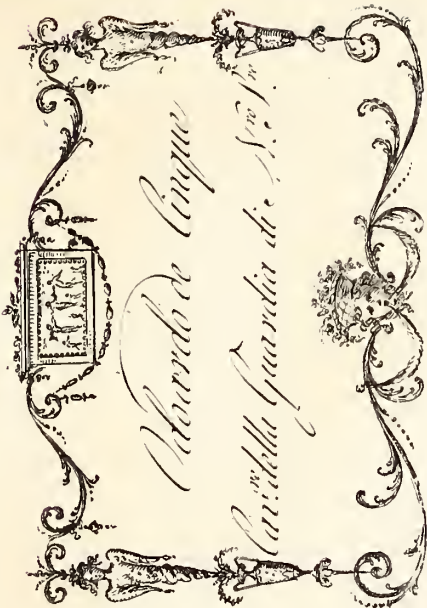 Odoardo de Cinque
Cav.re della Guardia di N.ro S.re